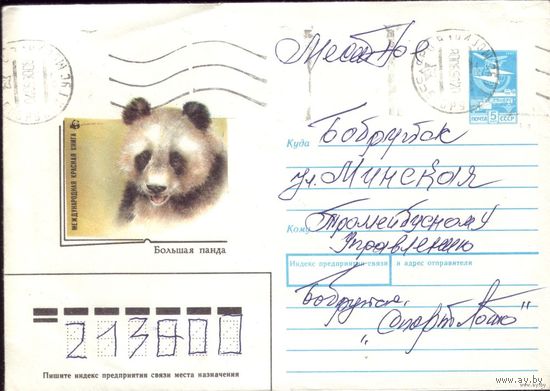 Местное
МЕЖДУНАРОДНАЯ КРАСНАЯ КНИГА
Большая панда
ПОЧТА 5
Куда Бобруйск
ул. Минская
Кому Тролейбусному
Управлению
Индекс предприятия связи и адрес отправителя
Бобруйск,
"Спорт Лото"
213800
Пишите индекс предприятия связи места назначения
www.ay.by